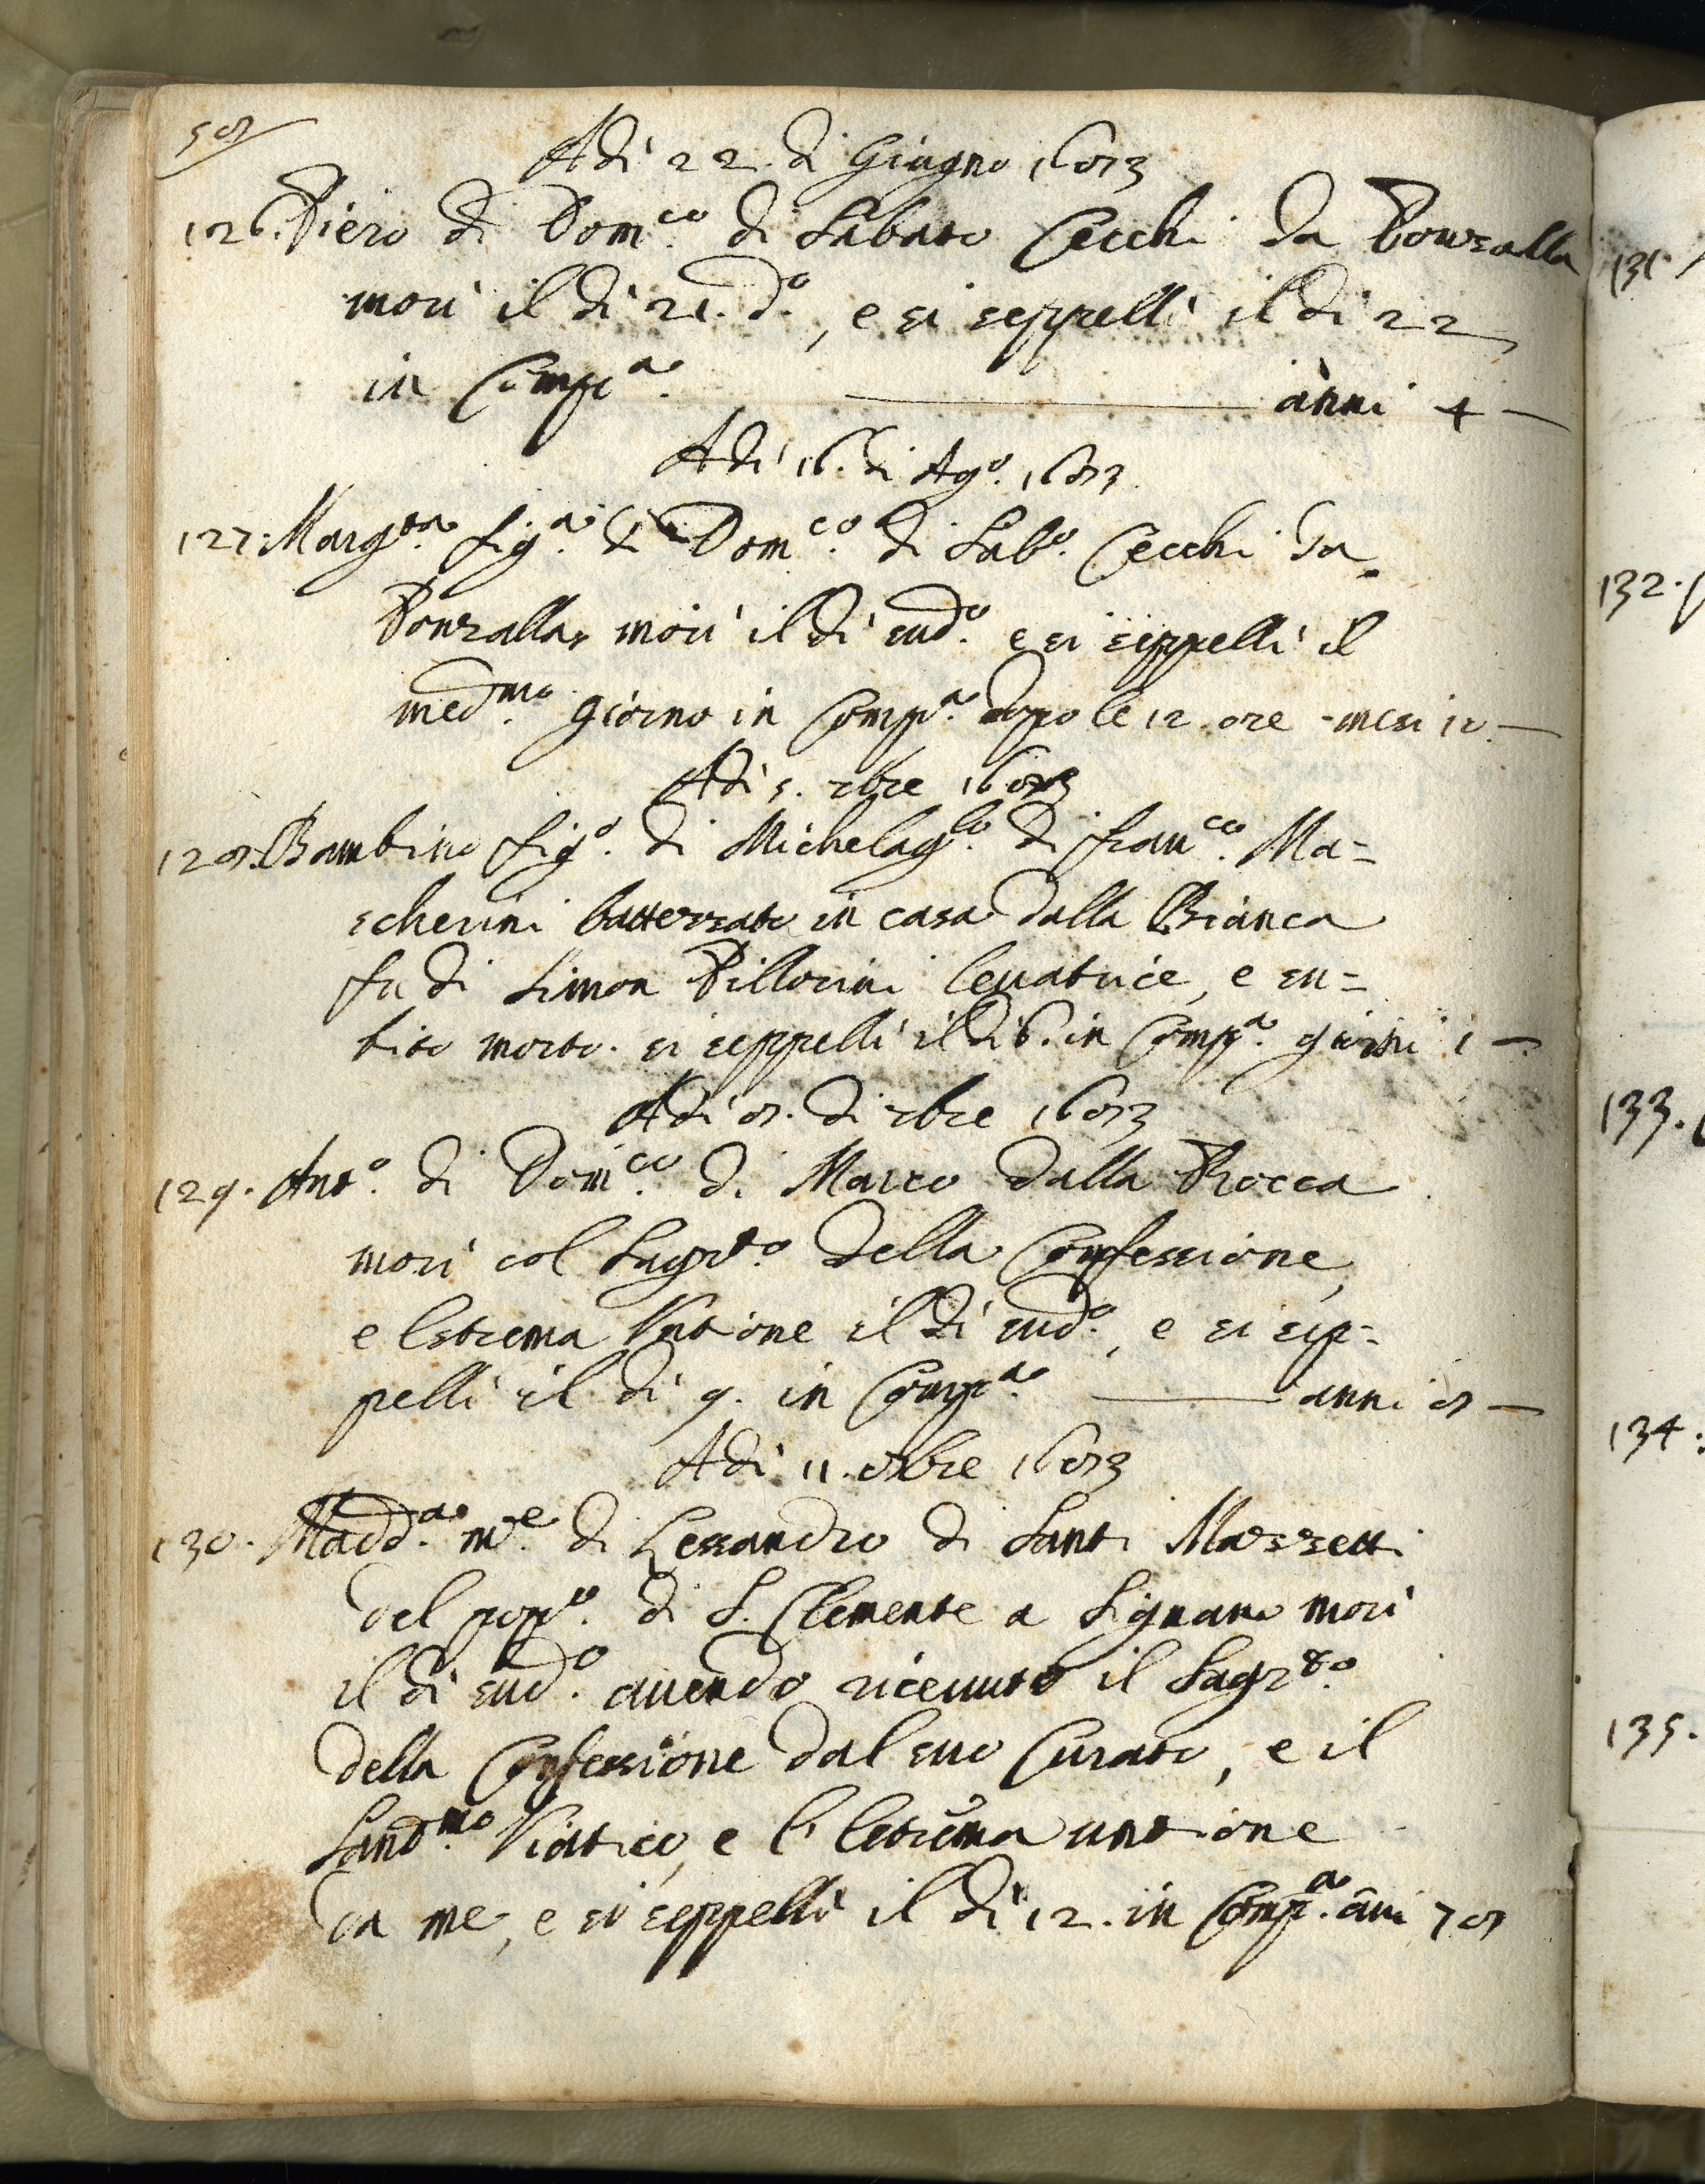 58
Adi 22. di Giugno 1683
126. Piero di Dom.co di Sabato Cecchi da Ponzalla
morì il dì 21. d.o, e si seppellì il dì 22
in Comp.a anni 4
Adi 16. di Ag.o 1683
127. Marg.ta fig.a di Dom.co di Sab.o Cecchi da
Ponzalla morì il dì sud.o e si seppellì il
med.mo giorno in Comp.a dopo le 12. ore - mesi 10
Adi 5. 7bre 1683
128. Bambino fig.o di Michelag.lo di Fran.co Ma=
scherini battezzato in casa dalla Bianca
fu di Simon Pillorini levatrice, e su=
bito morto. si seppellì il dì 6. in Comp.a giorni 1
Adi 8. di 7bre 1683
129. Ant.o di Dom.co di Marco dalla Rocca
morì col Sagr.to della Confessione,
e Estrema Untione il dì sud.o, e si sep=
pellì il dì 9. in Comp.a anni 8
Adì 11. 8bre 1683
130. Madd.a m.e di Lessandro di Santi Mazzetti
del pop.o di S. Clemente a Signano morì
il dì sud.o avendo ricevuto il Sagr.to
della Confessione dal suo Curato, e il
Sant.mo Viatico, e l'Estrema untione
da me, e si seppellì il dì 12. in Comp.a añi 78
131.
132.
133.
134.
135.